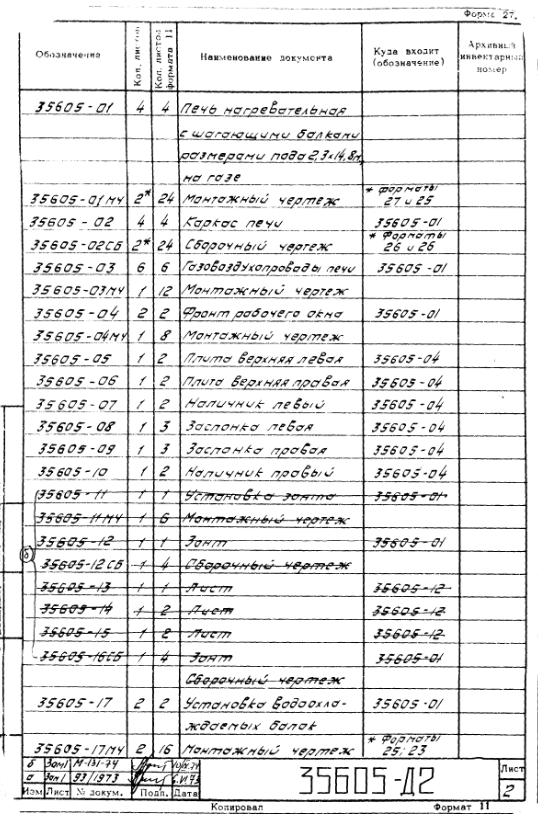 Форма 27.
Обозначение Кол. листов Кол. листов формата 11 Наименование документа Куда входит (обозначение) Архивный инвентарный номер
35605-01 4 4 Печь нагревательная
с шагающими балками
размерами пода 2,3×14,8м,
на газе
35605-01МЧ 2* 24 Монтажный чертеж * форматы 27 и 25
35605-02 4 4 Каркас печи 35605-01
35605-02СБ 2* 24 Сборочный чертеж * Форматы 26 и 26
35605-03 6 6 Газовоздухопроводы печи 35605-01
35605-03МЧ 1 12 Монтажный чертеж
35605-04 2 2 Фронт рабочего окна 35605-01
35605-04МЧ 1 8 Монтажный чертеж
35605-05 1 2 Плита верхняя левая 35605-04
35605-06 1 2 Плита верхняя правая 35605-04
35605-07 1 2 Наличник левый 35605-04
35605-08 1 3 Заслонка левая 35605-04
35605-09 1 3 Заслонка правая 35605-04
35605-10 1 2 Наличник правый 35605-04
35605-11 1 1 Установка зонта 35605-01
35605-11МЧ 1 6 Монтажный чертеж
35605-12 1 1 Зонт 35605-01
б
35605-12СБ 1 4 Сборочный чертеж
35605-13 1 1 Лист 35605-12
35605-14 1 2 Лист 35605-12
35605-15 1 2 Лист 35605-12
35605-16СБ 1 4 Зонт 35605-01
Сборочный чертеж
35605-17 2 2 Установка водоохла-
ждаемых балок 35605-01
35605-17МЧ 2 16 Монтажный чертеж * Форматы 25; 23
б Зам1 М-131-74
а Зам1 93/1973
Изм Лист № докум. Подп. Дата
35605-Д2
Лист
2
Копировал Формат 11